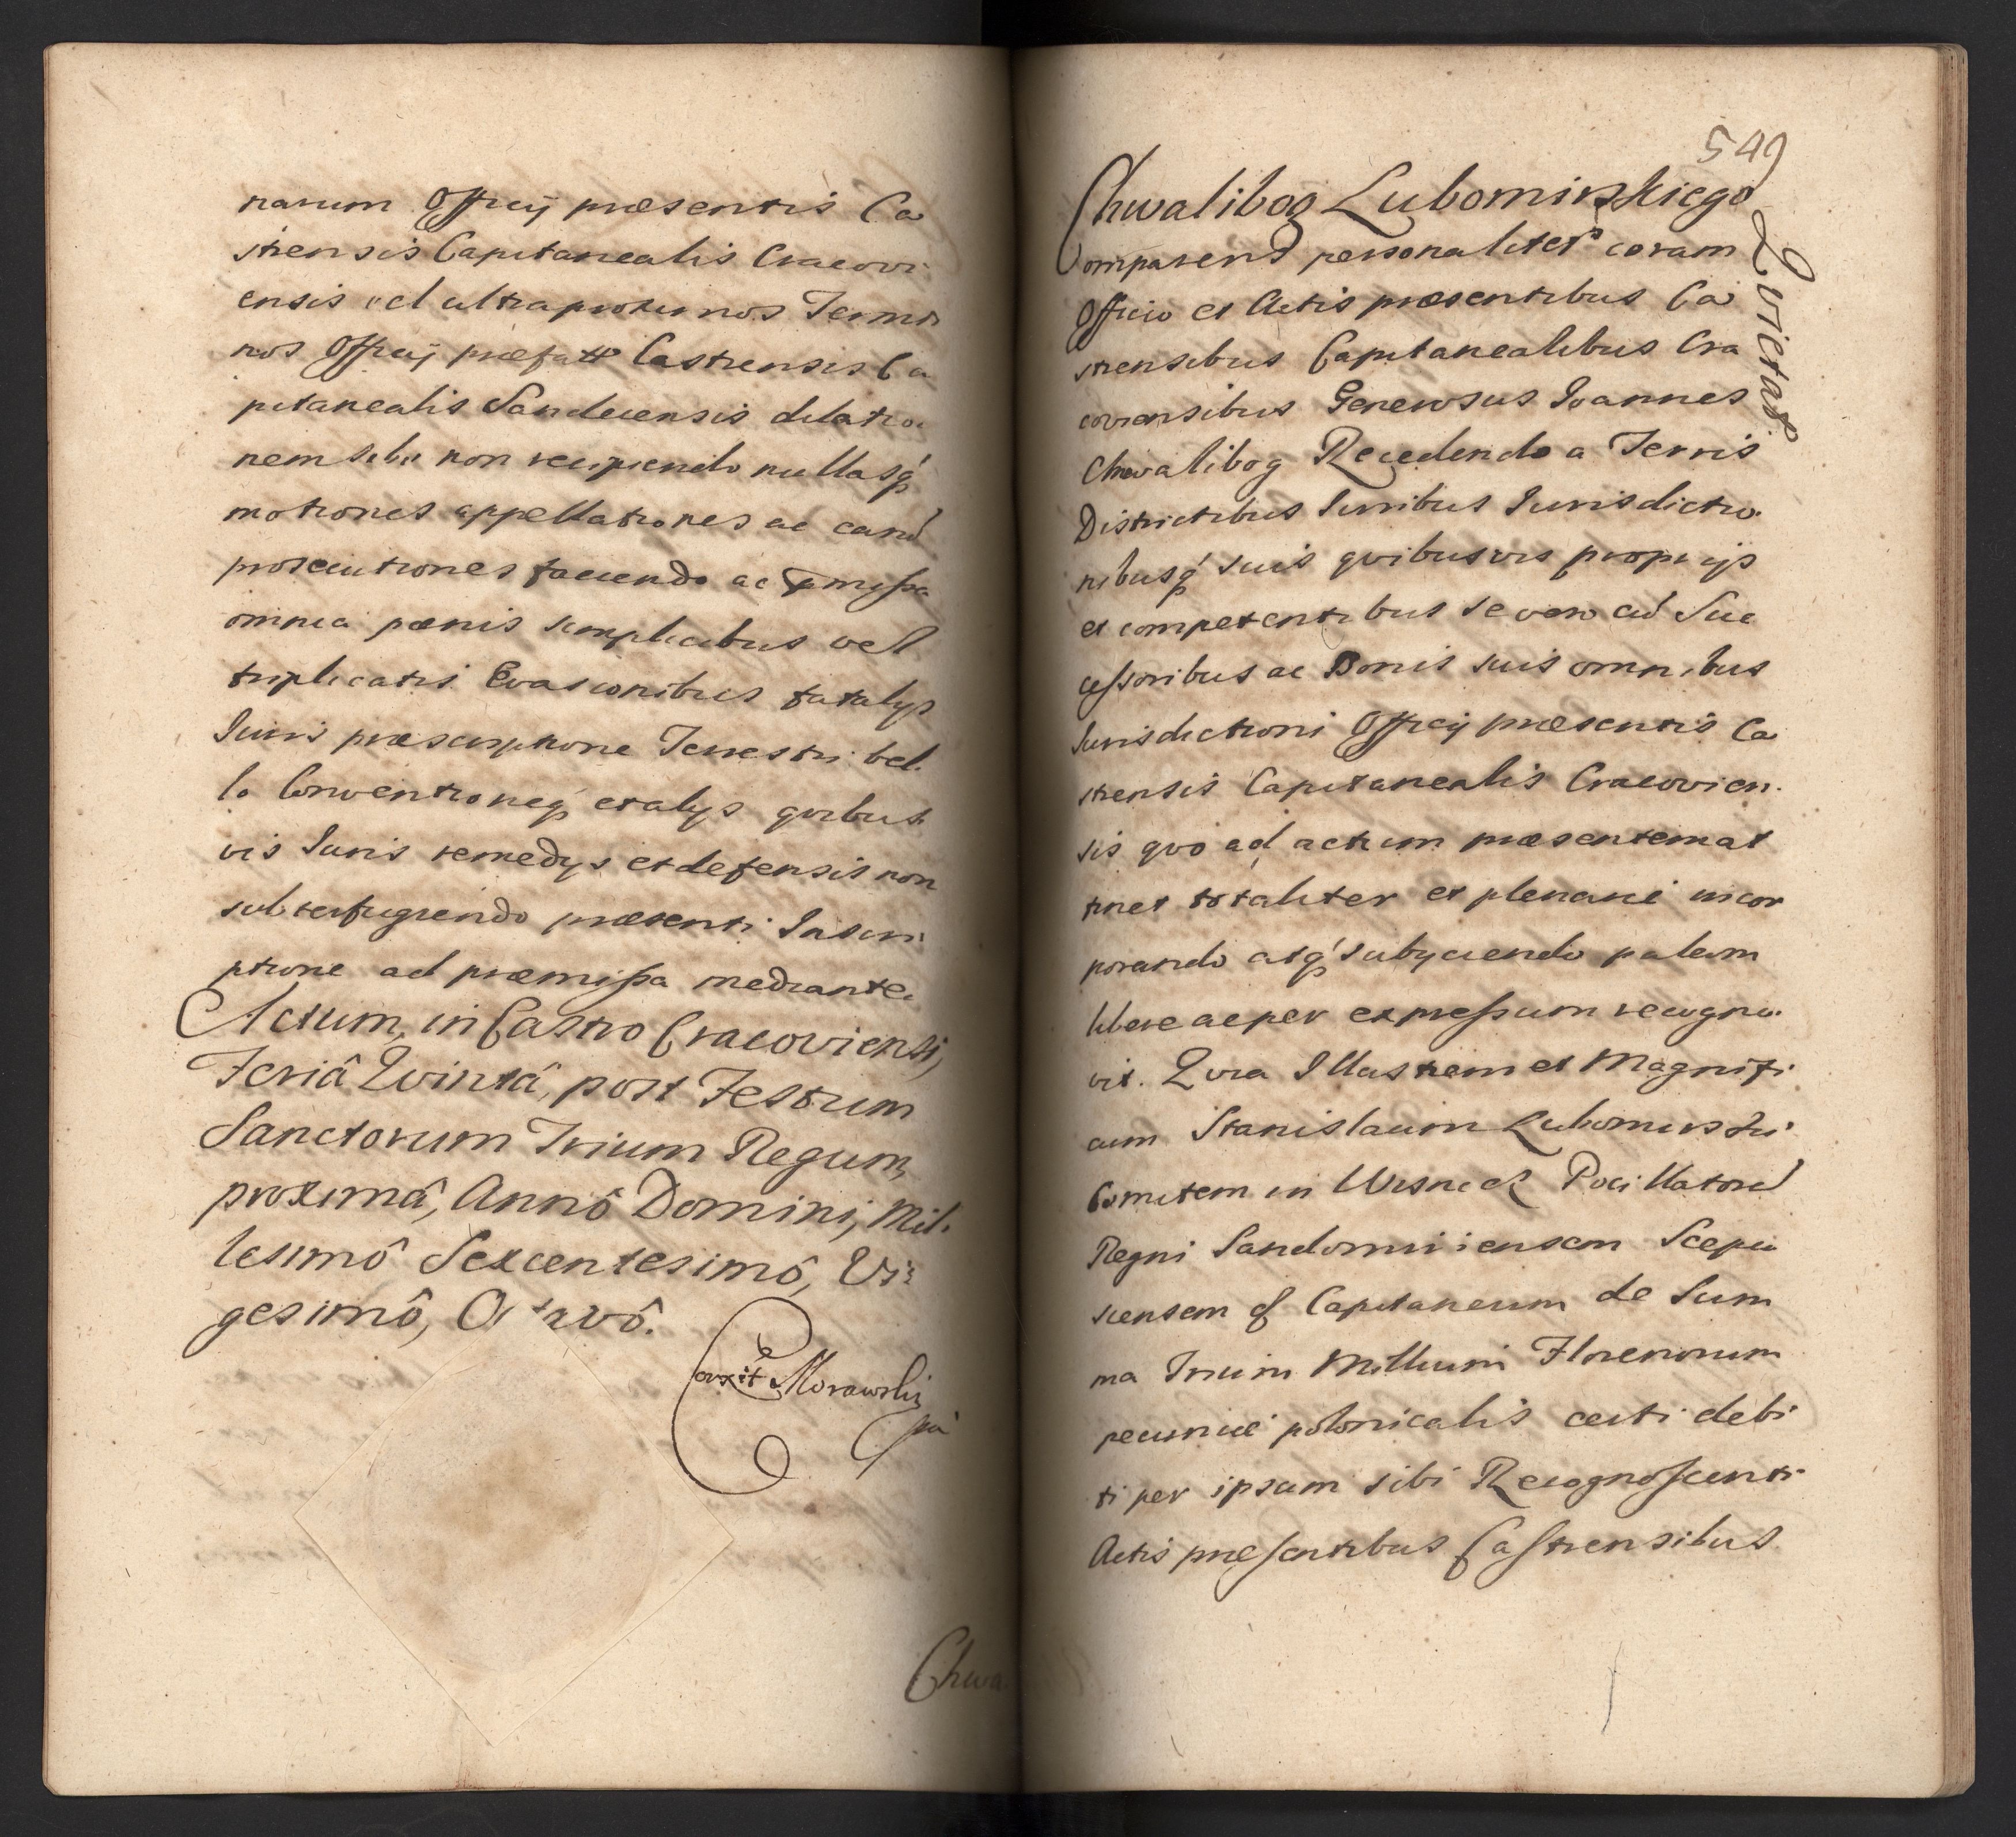 narum Officij præsentis Ca
strensis Capitanealis Cracovi
ensis vel ultraproximos Termi
nos Officij præfatt Castrensis Ca
pitanealis Sandecensis dilatio
nem sibi non recipiendo nullasq́
motiones appellationes ac eard
prosecutiones faciendo ac præmissa
omnia pœnis simplicibus vel
triplicatis Evasionibus fatalijs
Iuris præscriptione Terrestri bel
lo Conventioneq́ et alijs quibus
vis Iuris remedijs et defensis non
subterfugiendo præsenti Inscri
ptione ad præmissa mediante.
Actum, in Castro Cracoviensi,
Feriâ Qvintâ, post Festum
Sanctorum Trium Regum,
proximâ, Annô Domini, Mil.
lesimô Sexcentesimô, Vi:
gesimô, Octavô.
Corxit Morawski
Chwa
549
Chwalibog Lubomirskiego
Qvietat
Comparens personaliter coram
Officio et Actis præsentibus Ca
strensibus Capitanealibus Cra
coviensibus Generosus Ioannes
Chwalibog Recedendo a Terris
Districtibus Iuribus Iurisdictio
nibusq́ suis qvibusvis proprijs
et competentibus se vero cu̇ Suc
cessoribus ac Bonis suis omnibus
Iurisdictioni Officij præsentis Ca
strensis Capitanealis Cracovien.
sis qvo ad actum præsentem at
tinet totaliter et plenarie incor
porando atq́ subijciendo palam
libere ac per expressum recogno.
vit. Qvia Illustrem et Magnifi
cum Stanislaum Lubomirski
Comitem in Wisnicz Pocillatore
Regni Sandomiriensem Scepu
siensem & Capitaneum de Sum
ma Trium Millium Florenorum
pecuniæ polonicalis certi debi
ti per ipsam sibi Recognoscenti
Actis præsentibus Castrensibus